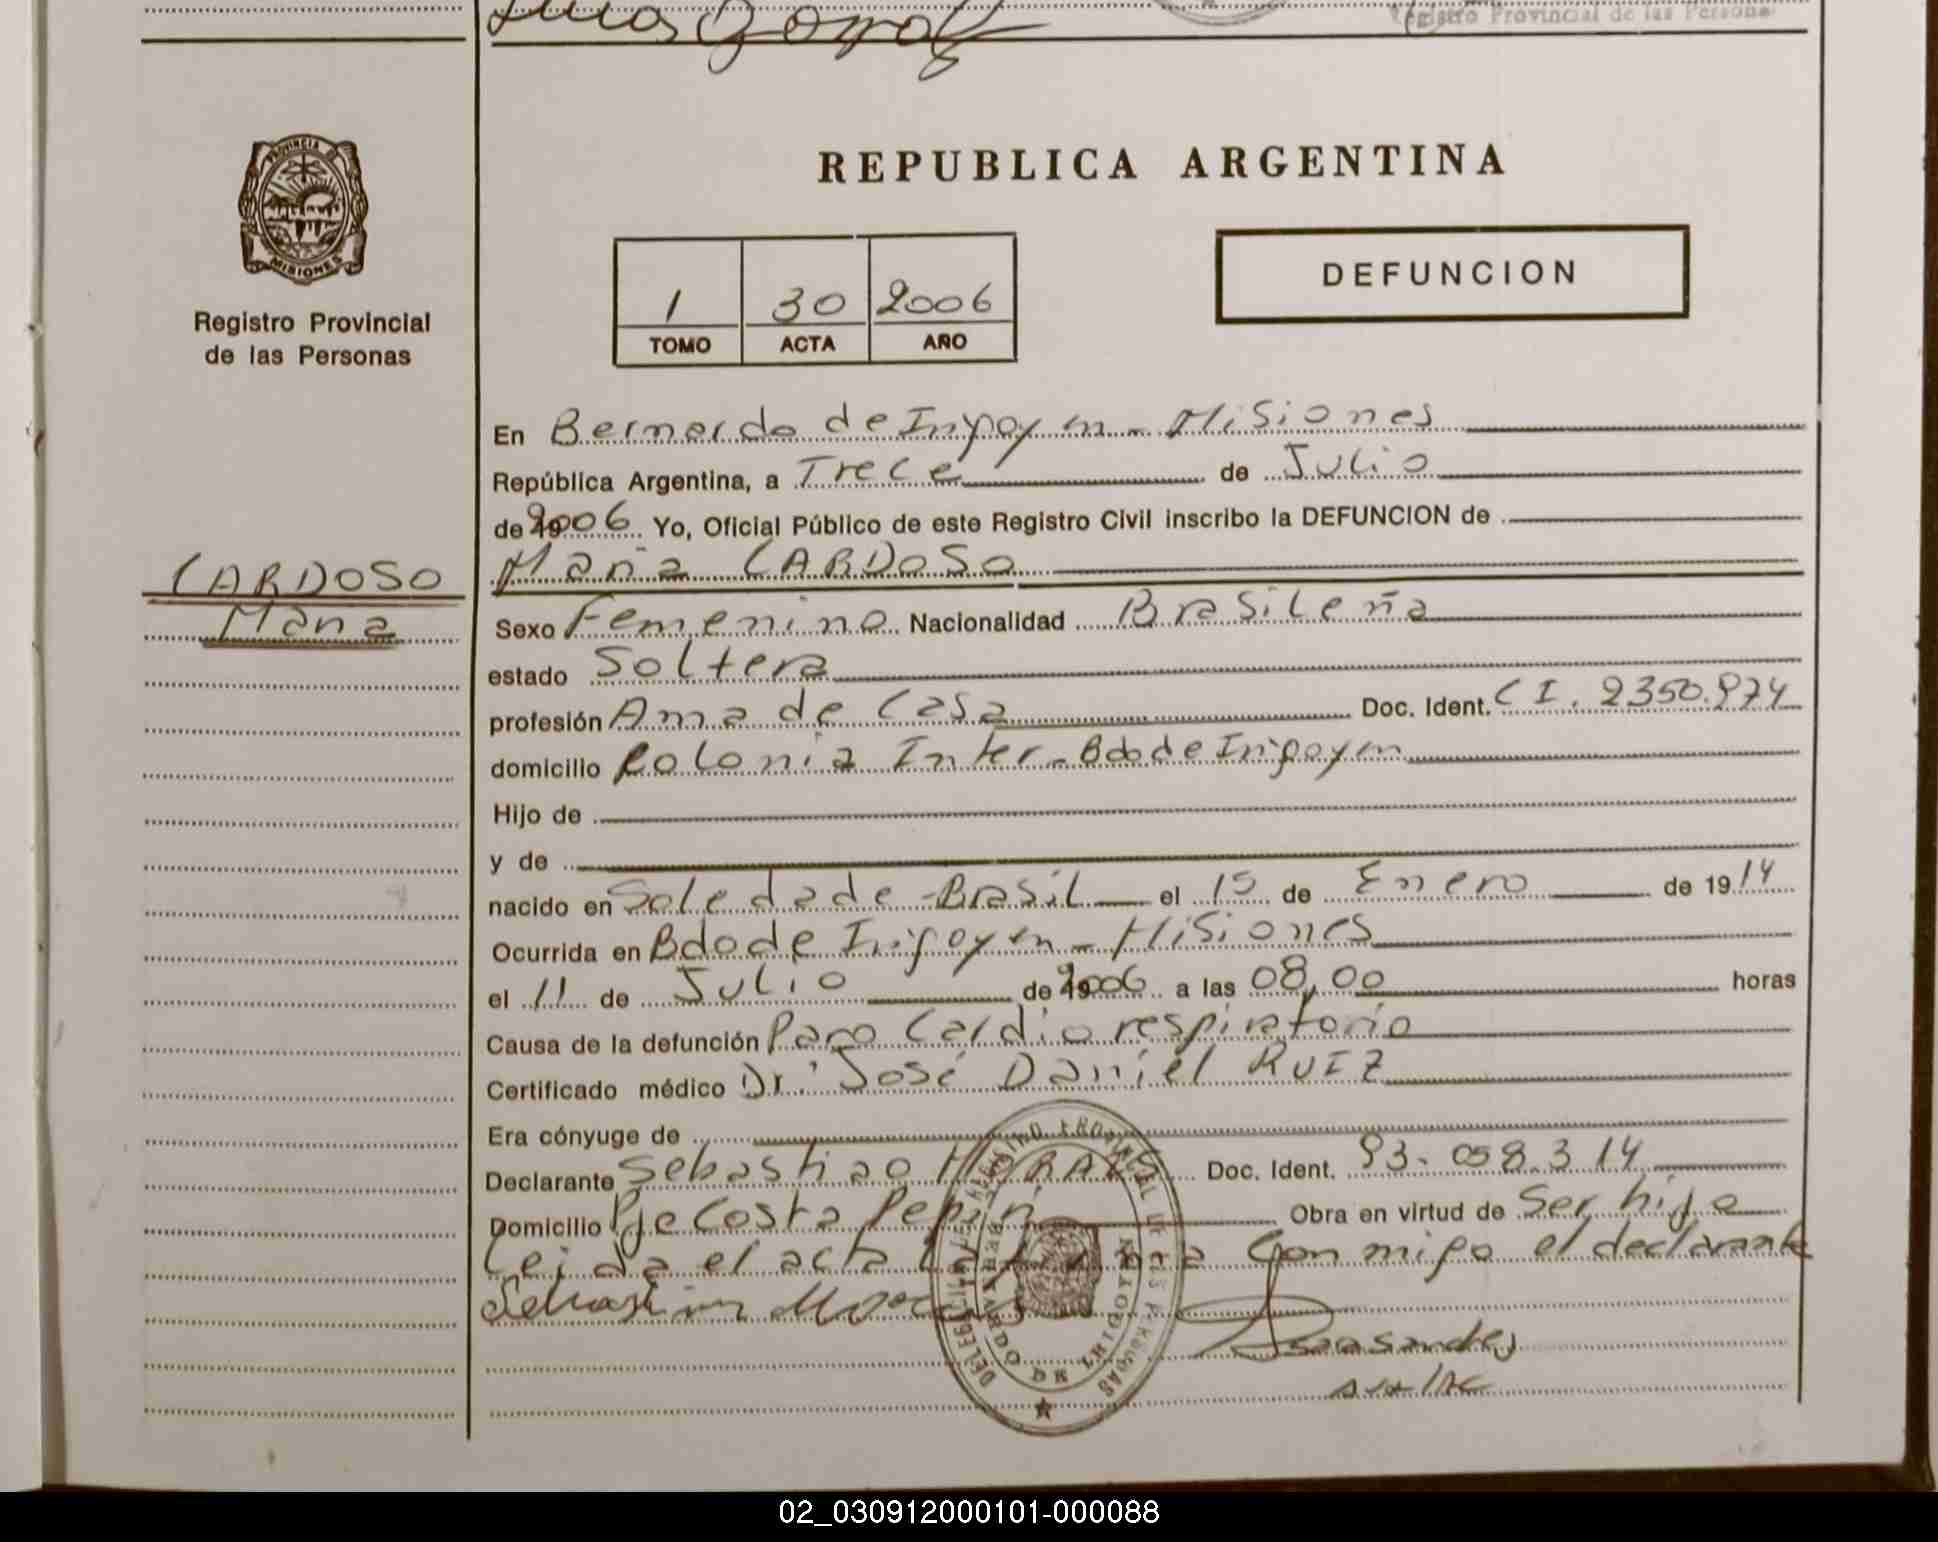 Registro Provincial de las Persona
PROVINCIA DE
MISIONES
Registro Provincial
de las Personas
REPUBLICA ARGENTINA
1 30 2006
TOMO ACTA AÑO
DEFUNCION
En Bernardo de Irigoyen - Misiones
República Argentina, a Trece de Julio
de 2006 Yo, Oficial Público de este Registro Civil inscribo la DEFUNCION de
CARDOSO
María
María CARDOSO
Sexo Femenino Nacionalidad Brasileña
estado Soltera
profesión Ama de Casa Doc. Ident. C I. 2350.974
domicilio Colonia Inter - Bdo de Irigoyen
Hijo de
y de
nacido en Soledade - Brasil el 15 de Enero de 1914
Ocurrida en Bdo de Irigoyen - Misiones
el 11 de Julio de 2006 a las 08,00 horas
Causa de la defunción Paro Cardio respiratorio
Certificado médico Dr. José Daniel RUIZ
Era cónyuge de
Declarante Sebastiao MORAES Doc. Ident. 93.058.314
Domicilio Pje Costa Pepirí Obra en virtud de Ser hijo
Leida el acta la firma Conmigo el declarante
DELEGACION REGISTRO PROVINCIAL DE LAS PERSONAS
BERNARDO DE IRIGOYEN
02_030912000101-000088